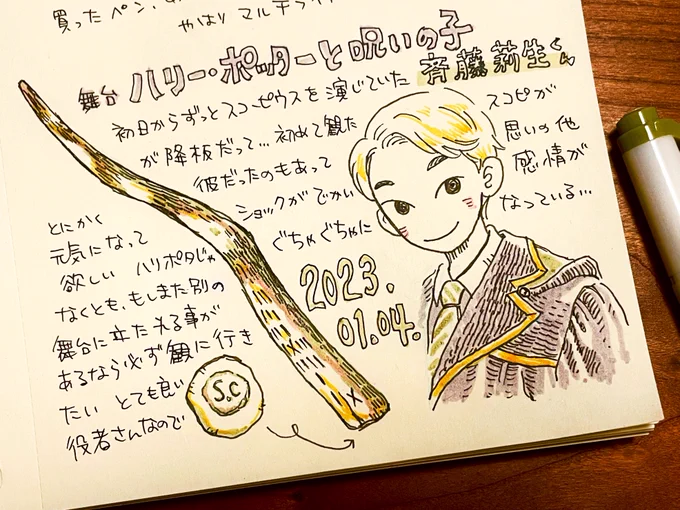 買ったペン、
やはり マルチライ
舞台 ハリー・ポッターと呪いの子
斉藤莉生くん
初日からずっとスコーピウスを演じていた
が降板だって…初めて観た
彼だったのもあって
ショックがでかい
スコピが
思いの他
感情が
ぐちゃぐちゃに
なっている…
とにかく
元気になって
欲しい ハリポタじゃ
なくとも、もしまた別の
舞台に立たれる事が
あるなら必ず観に行き
たい とても良い
役者さんなので
2023.
01.04.
S.C